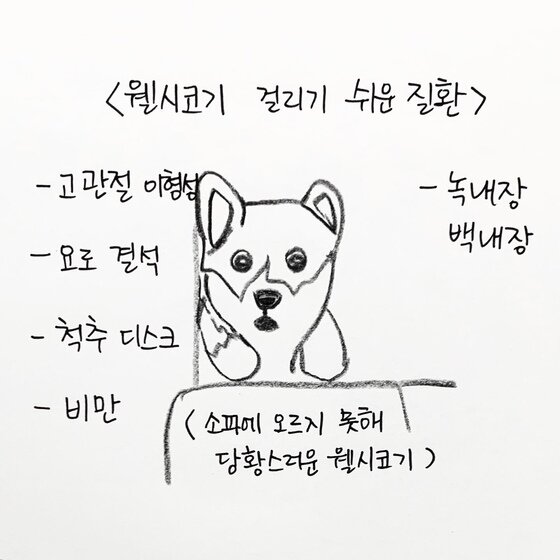 <웰시코기 걸리기 쉬운 질환>
- 고관절 이형성
- 요로 결석
- 척추 디스크
- 비만
- 녹내장
백내장
( 소파에 오르지 못해
당황스러운 웰시코기 )